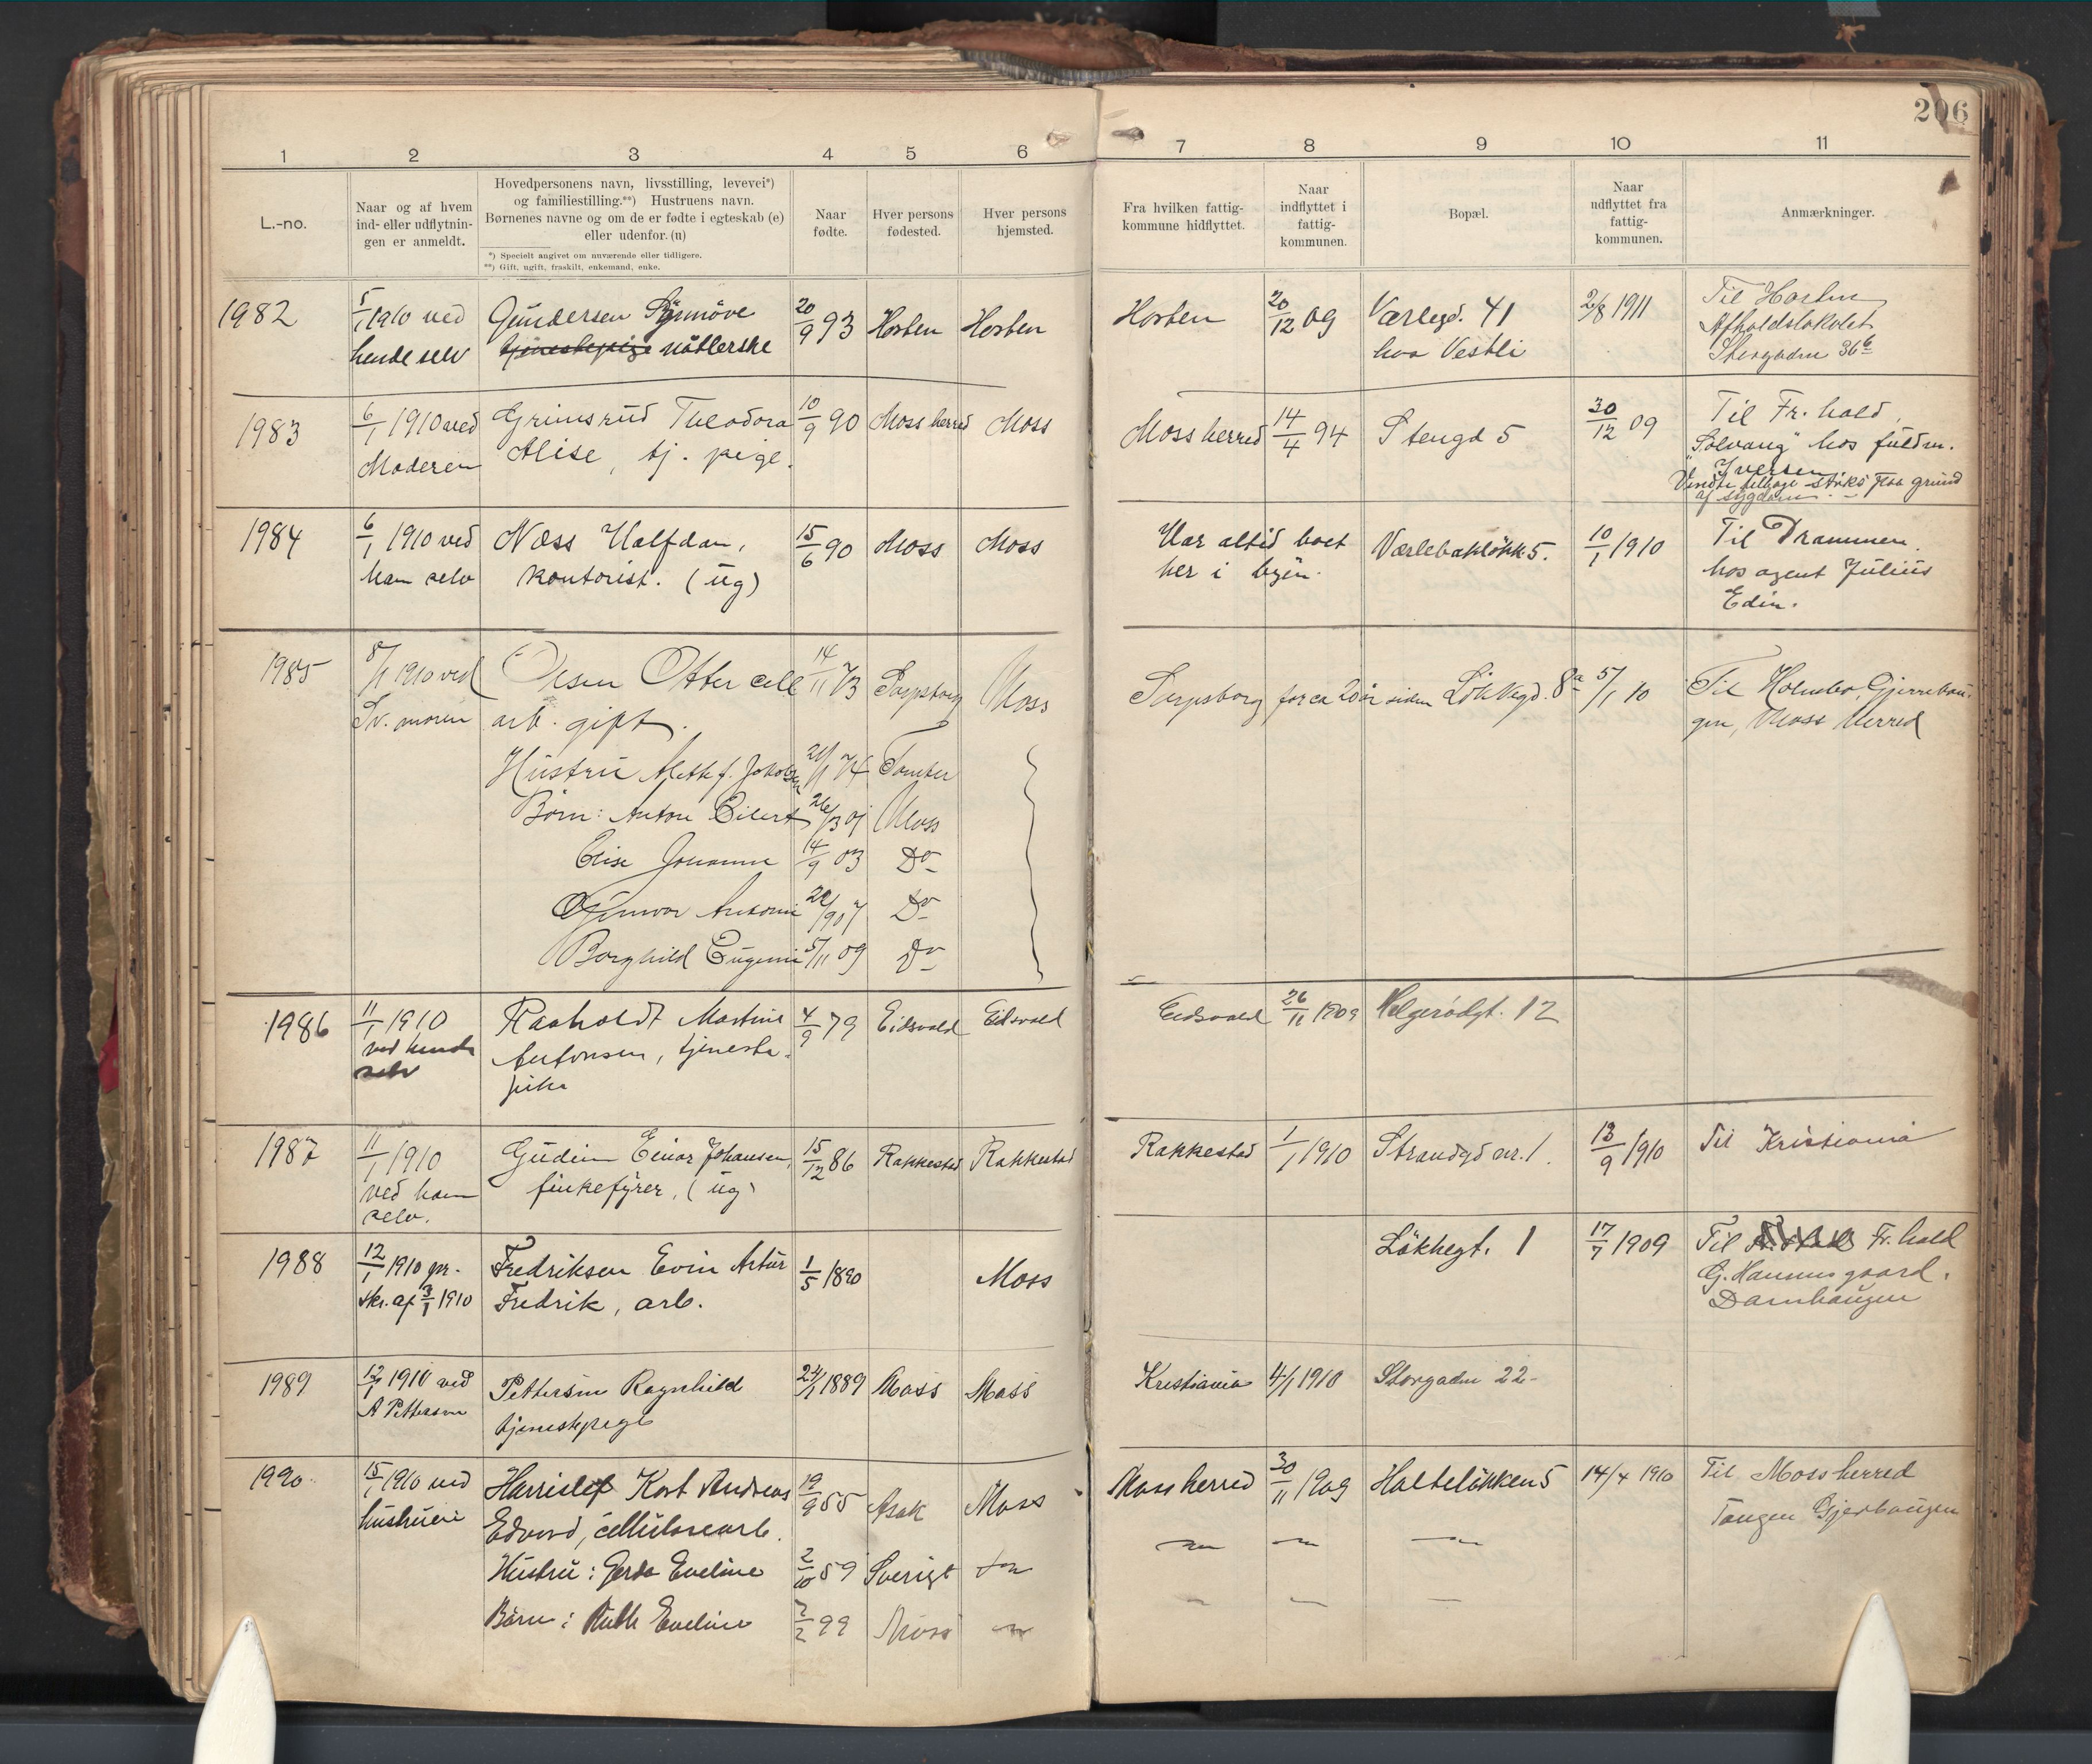 206
1 2 3 4 5 6 7 8 9 10 11
L.-no.
Naar og af hvem
ind- eller udflytnin-
gen er anmeldt.
Hovedpersonens navn, livsstilling, levevei*)
og familiestilling.**) Hustruens navn.
Børnenes navne og om de er fødte i egteskab (e)
eller udenfor. (u)
*) Specielt angivet om nuværende eller tidligere.
**) Gift, ugift, fraskilt, enkemand, enke.
Naar
fødte.
Hver persons
fødested.
Hver persons
hjemsted.
Fra hvilken fattig-
kommune hidflyttet.
Naar
indflyttet i
fattig-
kommunen.
Bopæl.
Naar
udflyttet fra
fattig-
kommunen.
Anmærkninger.
1982 5/1 1910 ved Gundersen Synnöve 20/9 93 Horten Horten Horten 20/12 09 Værlegd. 41 2/8 1911 Til Horten
hende selv tjenestepige nåtlerske hos Vestli Afholdslokalet
Storgaden 36 b
1983 6/1 1910 ved Grimsrud Theodora 10/9 90 Moss herred Moss Moss herred 14/4 94 Stengd 5 30/12 09 Til Fr. hald
Moderen Alise, tj. pige. "Solvang" hos fuldm.
Iversen
Vendte tilbage straks paa grund
af sygdom
1984 6/1 1910 ved Næss Halfdan, 15/6 90 Moss Moss Har altid boet Værlebakløkk 5. 10/1 1910 Til Drammen
ham selv kontorist. (ug) her i byen. hos agent Julius
Edin.
1985 8/1 1910 ved Olsen Otter cell 14/11 73 Sarpsborg Moss Sarpsborg for ca 20 år siden Løkkegd. 8a 5/1 10 Til Holmbo, Gjerrebau-
Sv. moren arb. gift. gen, Moss Herred
Hustru Aleth f. Jakobsen 21/1 74 Tomter
Børn: Anton Eilert 26/3 01 Moss
Elise Johanne 14/9 03 Do
Gunvor Antonie 22/9 07 Do
Borghild Eugenie 5/11 09 Do
1986 11/1 1910 Raaholdt Martine 4/9 79 Eidsvold Eidsvold Eidsvold 26/11 1909 Helgerødgt. 12
ved hende Antonsen, tjeneste-
selv pike
1987 11/1 1910 Gudim Einar Johansen, 15/12 86 Rakkestad Rakkestad Rakkestad 1/1 1910 Strandgd nr. 1. 13/9 1910 Til Kristiania
ved ham finkefyrer, (ug)
selv.
1988 12/1 1910 pr. Fredriksen Evin Artur 1/5 1890 Moss Løkkegt. 1 17/7 1909 Til Fr. hald
skr. af 3/1 1910 Fredrik, arb. G. Hannus gaard.
Damhaugen
1989 12/1 1910 ved Pettersen Ragnhild 24/1 1889 Moss Moss Kristiania 4/1 1910 Storgaden 22
A Pettersen tjenestepige
1990 15/1 1910 ved Harrislef Kort Andreas 19/9 55 Asak Moss Moss herred 30/11 1909 Holteløkken 5 14/4 1910 Til Moss herred
hustruen Edvard, cellulosearb. Tangen Gjerbaugen
Hustru: Gerda Eveline 2/10 59 Sverige
Børn: Ruth Eveline 7/2 99 Moss